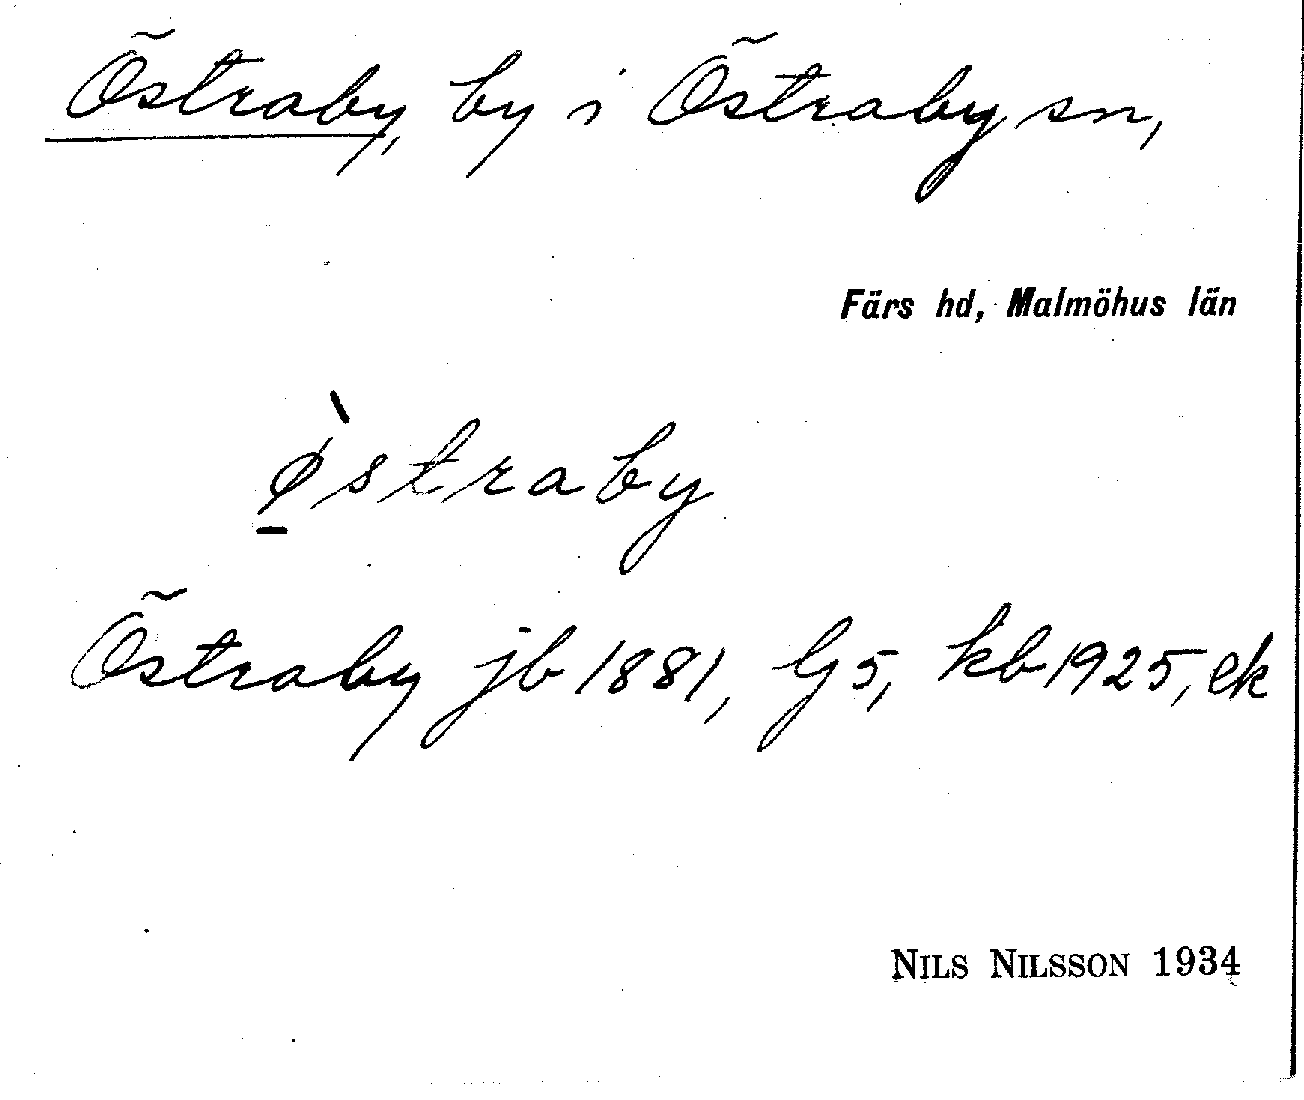 Östraby, by i Östraby sn,
Färs hd, Malmöhus län
ø̱̀straby
Östraby jb 1881, G5, kb 1925, ek
NILS NILSSON 1934